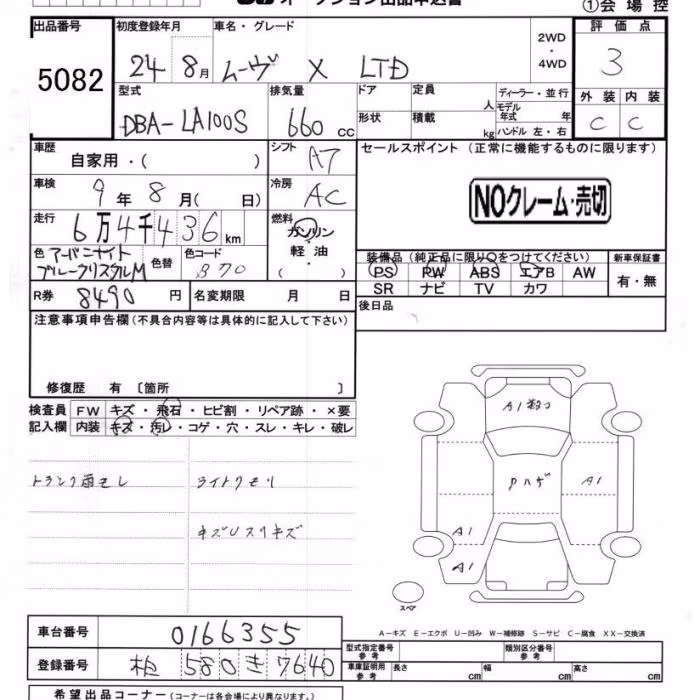 ①会場控
出品番号 初度登録年月 車名・グレード 2WD・4WD 評価点
5082 24 8月 ムーヴ X LTD 3
型式 排気量 ドア 定員 人 ディーラー・並行 外装 内装
DBA-LA100S 660 cc 形状 積載 kg モデル年式 年 ハンドル 左・右 C C
車歴 自家用・( ) シフト A7 セールスポイント (正常に機能するものに限ります)
車検 9年 8月( 日) 冷房 AC NOクレーム・売切
走行 6万4千436km 燃料 ガソリン・軽油・( )
色 アーバンナイトブルークリスタルM 色替 色コード B70
装備品 (純正品に限り○をつけてください) 新車保証書
PS PW ABS エアB AW 有・無
SR ナビ TV カワ
R券 8490円 名変期限 月 日 後日品
注意事項申告欄 (不具合内容等は具体的に記入して下さい)
修復歴 有 〔箇所 〕
検査員 FW キズ・飛石・ヒビ割・リペア跡・×要
記入欄 内装 キズ・汚レ・コゲ・穴・スレ・キレ・破レ
トランク雨モレ ライトクモリ
キズUスリキズ
A1
Pハゲ A1
A1
A1
スペア
A-キズ E-エクボ U-凹み W-補修跡 S-サビ C-腐食 XX-交換済
車台番号 0166355
登録番号 柏 580 き 7640
型式指定番号 類別区分番号
車庫証明用参考 長さ cm 幅 cm 高さ cm
希望出品コーナー (コーナーは各会場により異なります。)